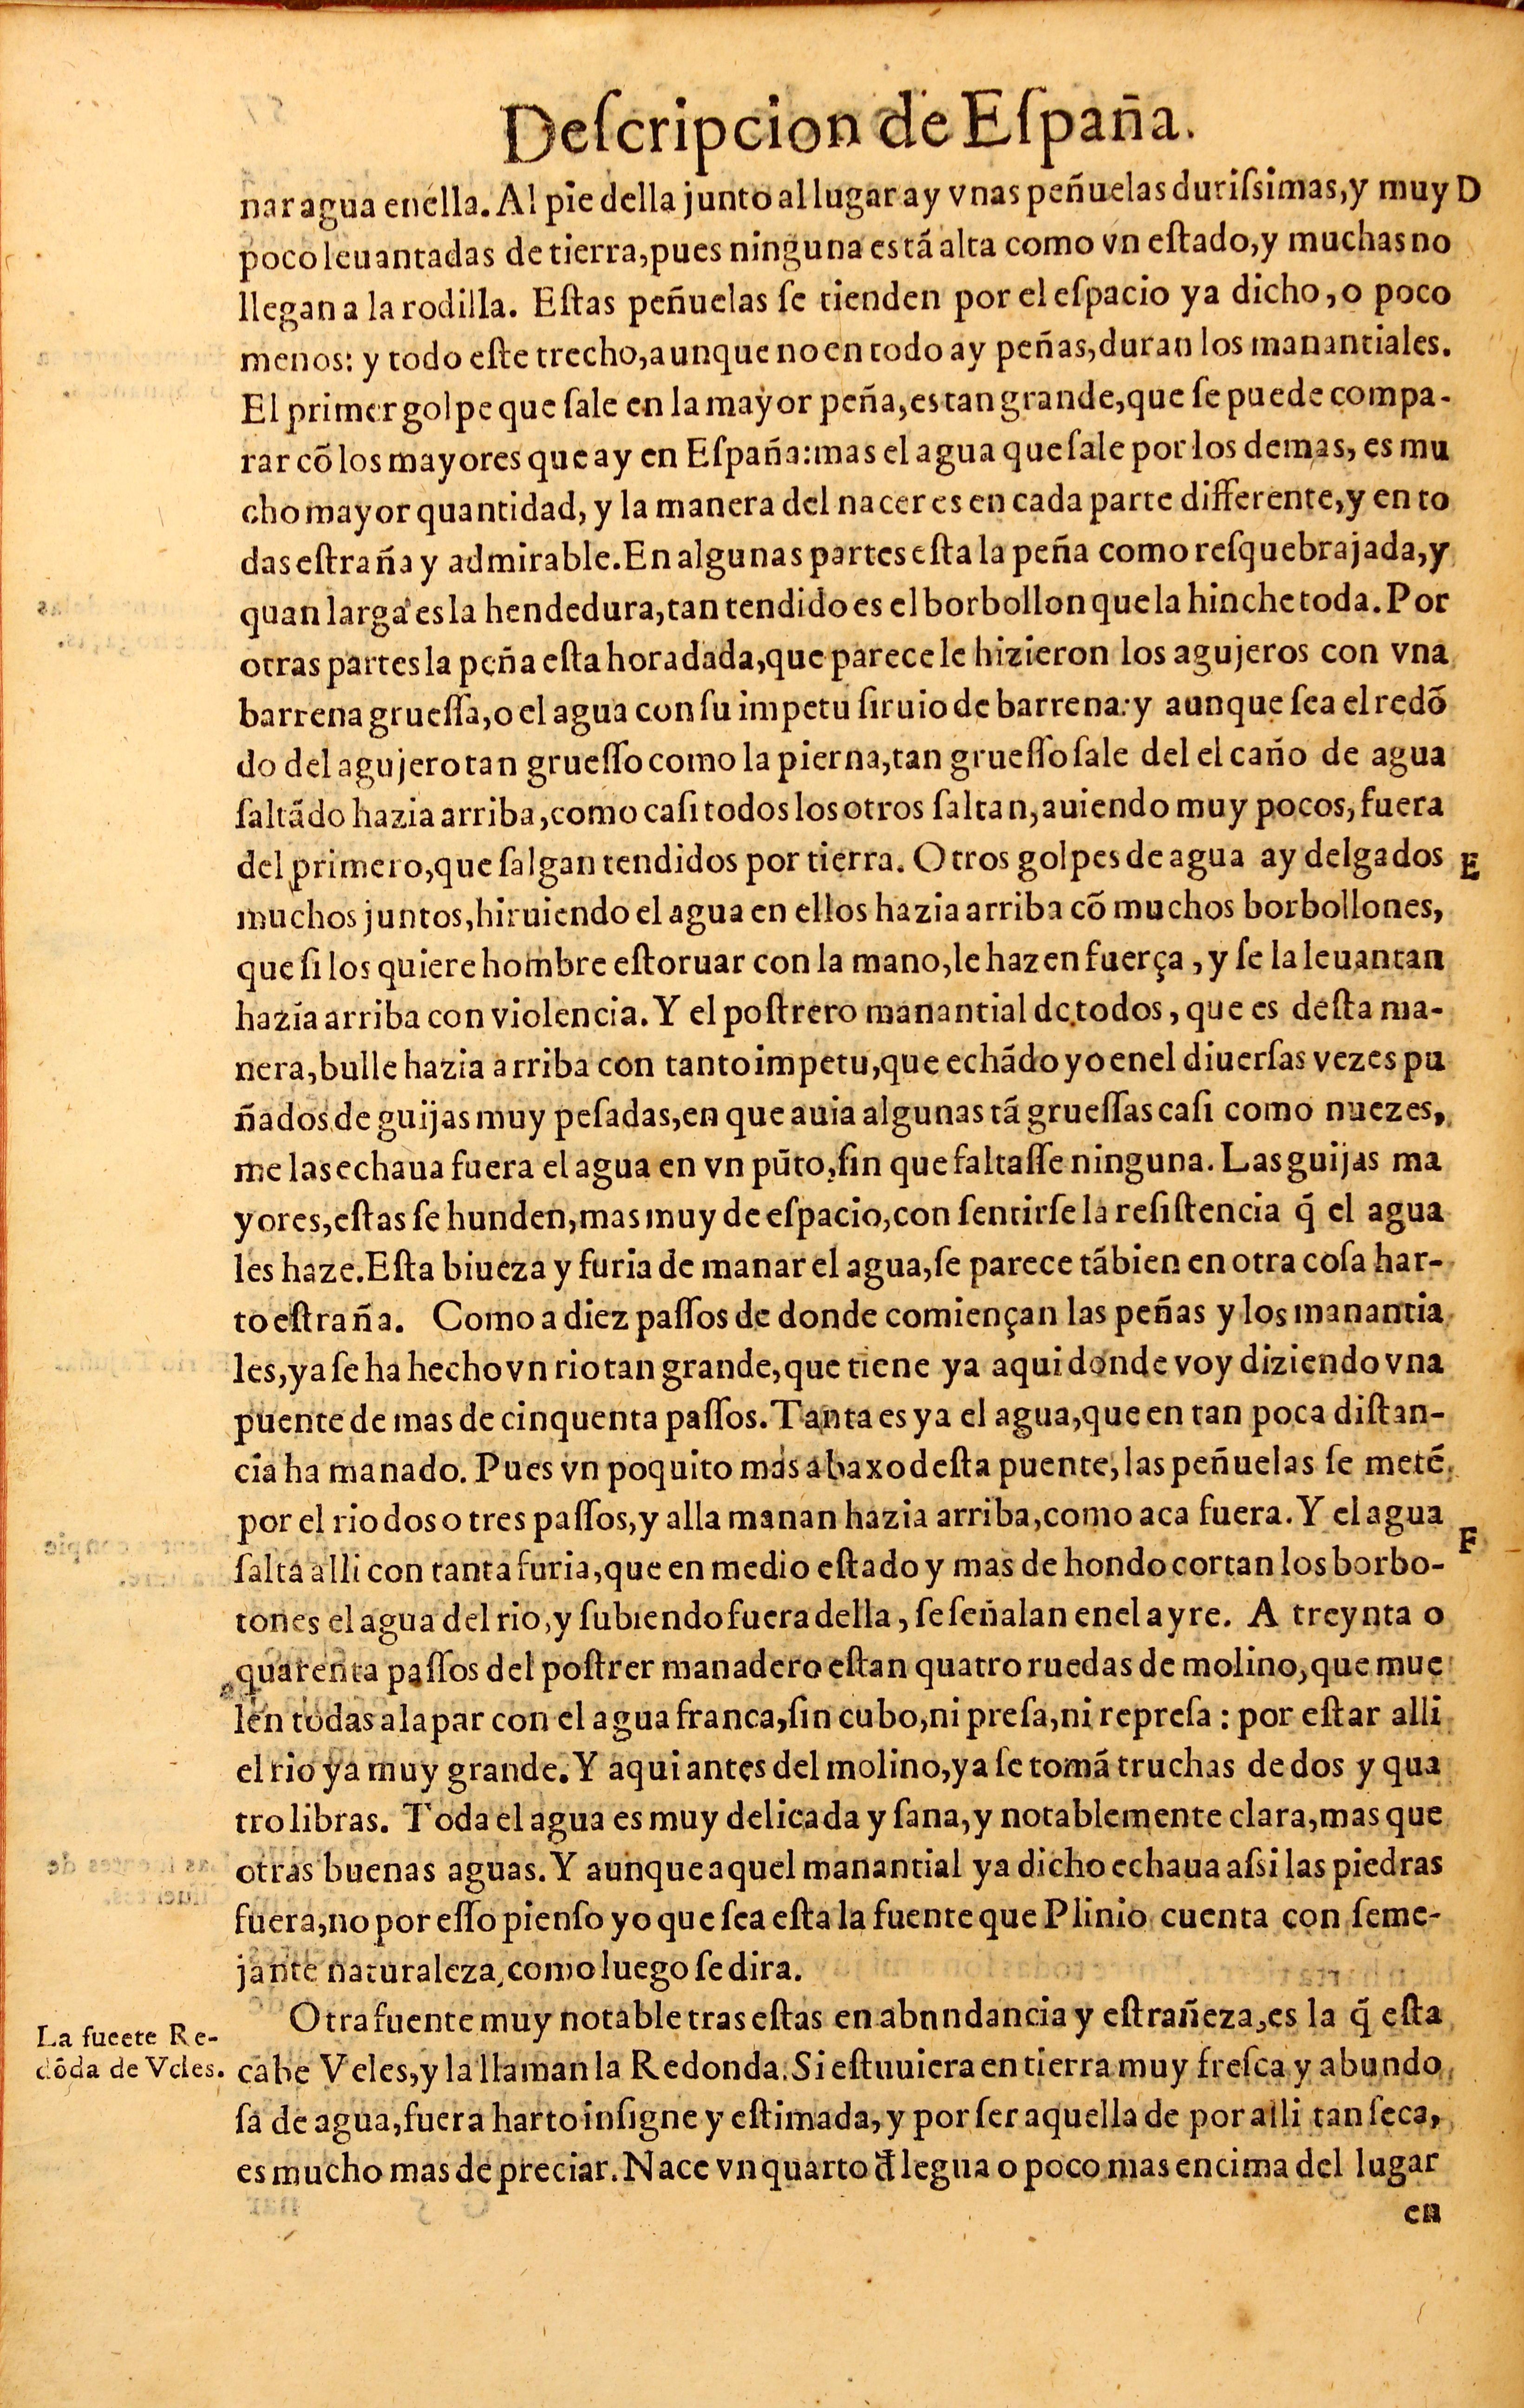 Deſcripcion de Eſpaña.
nar agua enella. Al pie della junto al lugar ay vnas peñuelas duriſsimas, y muy D
poco leuantadas de tierra, pues ninguna estã alta como vn eſtado, y muchas no
llegan a la rodilla. Eſtas peñuelas ſe tienden por el eſpacio ya dicho, o poco
menos: y todo eſte trecho, aunque no en todo ay peñas, duran los manantiales.
El primer golpe que ſale en la mayor peña, es tan grande, que ſe puede compa-
rar cõ los mayores que ay en Eſpaña: mas el agua que ſale por los demas, es mu
cho mayor quantidad, y la manera del nacer es en cada parte differente, y en to
das eſtraña y admirable. En algunas partes eſta la peña como reſquebrajada, y
quan larga es la hendedura, tan tendido es el borbollon que la hinche toda. Por
otras partes la peña eſta horadada, que parece le hizieron los agujeros con vna
barrena grueſſa, o el agua con ſu impetu ſiruio de barrena: y aunque ſea el redõ
do del agujero tan grueſſo como la pierna, tan grueſſo ſale del el caño de agua
ſaltãdo hazia arriba, como caſi todos los otros ſaltan, auiendo muy pocos, fuera
del primero, que ſalgan tendidos por tierra. Otros golpes de agua ay delgados E
muchos juntos, hiruiendo el agua en ellos hazia arriba cõ muchos borbollones,
que ſi los quiere hombre eſtoruar con la mano, le hazen fuerça, y ſe la leuantan
hazia arriba con violencia. Y el poſtrero manantial de todos, que es deſta ma-
nera, bulle hazia arriba con tanto impetu, que echãdo yo enel diuerſas vezes pu
ñados de guijas muy peſadas, en que auia algunas tã grueſſas caſi como nuezes,
me las echaua fuera el agua en vn pũto, ſin que faltaſſe ninguna. Las guijas ma
yores, eſtas ſe hunden, mas muy de eſpacio, con ſentirſe la reſiſtencia q̃ el agua
les haze. Eſta biueza y furia de manar el agua, ſe parece tãbien en otra coſa har-
to eſtraña. Como a diez paſſos de donde comiençan las peñas y los manantia
les, ya ſe ha hecho vn rio tan grande, que tiene ya aqui donde voy diziendo vna
puente de mas de cinquenta paſſos. Tanta es ya el agua, que en tan poca diſtan-
cia ha manado. Pues vn poquito mas abaxo deſta puente, las peñuelas ſe metẽ
por el rio dos o tres paſſos, y alla manan hazia arriba, como aca fuera. Y el agua F
ſalta alli con tanta furia, que en medio eſtado y mas de hondo cortan los borbo-
tones el agua del rio, y ſubiendo fuera della, ſe ſeñalan enel ayre. A treynta o
quarenta paſſos del poſtrer manadero eſtan quatro ruedas de molino, que mue
len todas a la par con el agua franca, ſin cubo, ni preſa, ni repreſa: por eſtar alli
el rio ya muy grande. Y aqui antes del molino, ya ſe tomã truchas de dos y qua
tro libras. Toda el agua es muy delicada y ſana, y notablemente clara, mas que
otras buenas aguas. Y aunque aquel manantial ya dicho echaua aſsi las piedras
fuera, no por eſſo pienſo yo que ſea eſta la fuente que Plinio cuenta con ſeme-
jante naturaleza, como luego ſe dira.
Otra fuente muy notable tras eſtas en abnndancia y eſtrañeza, es la q̃ eſta
cabe Veles, y la llaman la Redonda. Si eſtuuiera en tierra muy freſca y abundo
ſa de agua, fuera harto inſigne y eſtimada, y por ſer aquella de por alli tan ſeca,
es mucho mas de preciar. Nace vn quarto đ legua o poco mas encima del lugar
en
La fueete Re-
dõda de Veles.